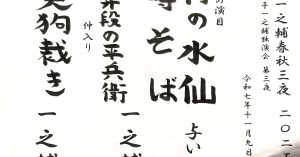 一之輔春秋三夜 二〇二
亭一之輔独演会 第三夜
令和七年十一月九日
の演目
の水仙 与い
そば
仲入り
段の平兵衛 一之輔
狗裁き 一之輔